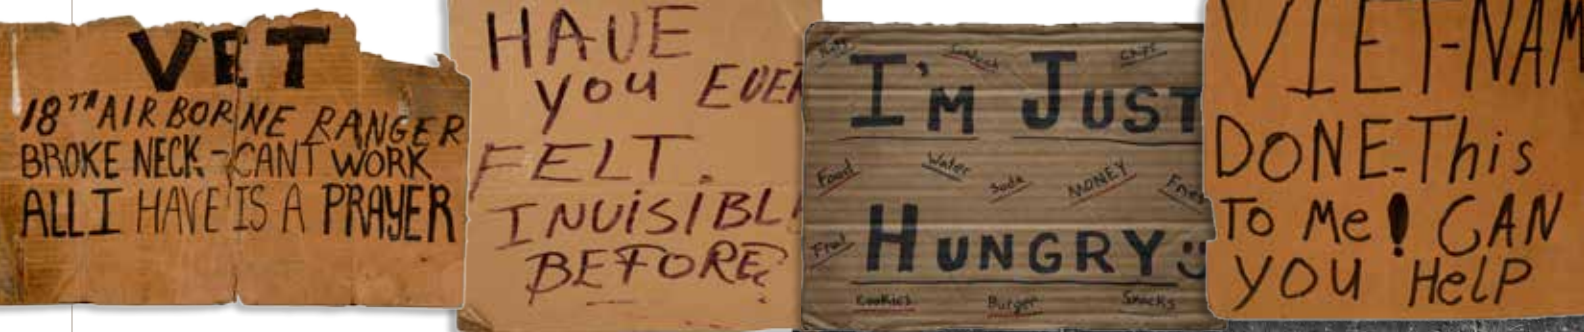 VET
18TH AIRBORNE RANGER
BROKE NECK - CANT WORK
ALL I HAVE IS A PRAYER
HAVE
you EVER
FELT
INViSiBL
BEFORE?
Chips
I'M JUST
Food Water Soda MONEY Fries
HUNGRY
Cookies Burger Snacks
VIET-NAM
DONE-This
To Me! CAN
YOU HelP